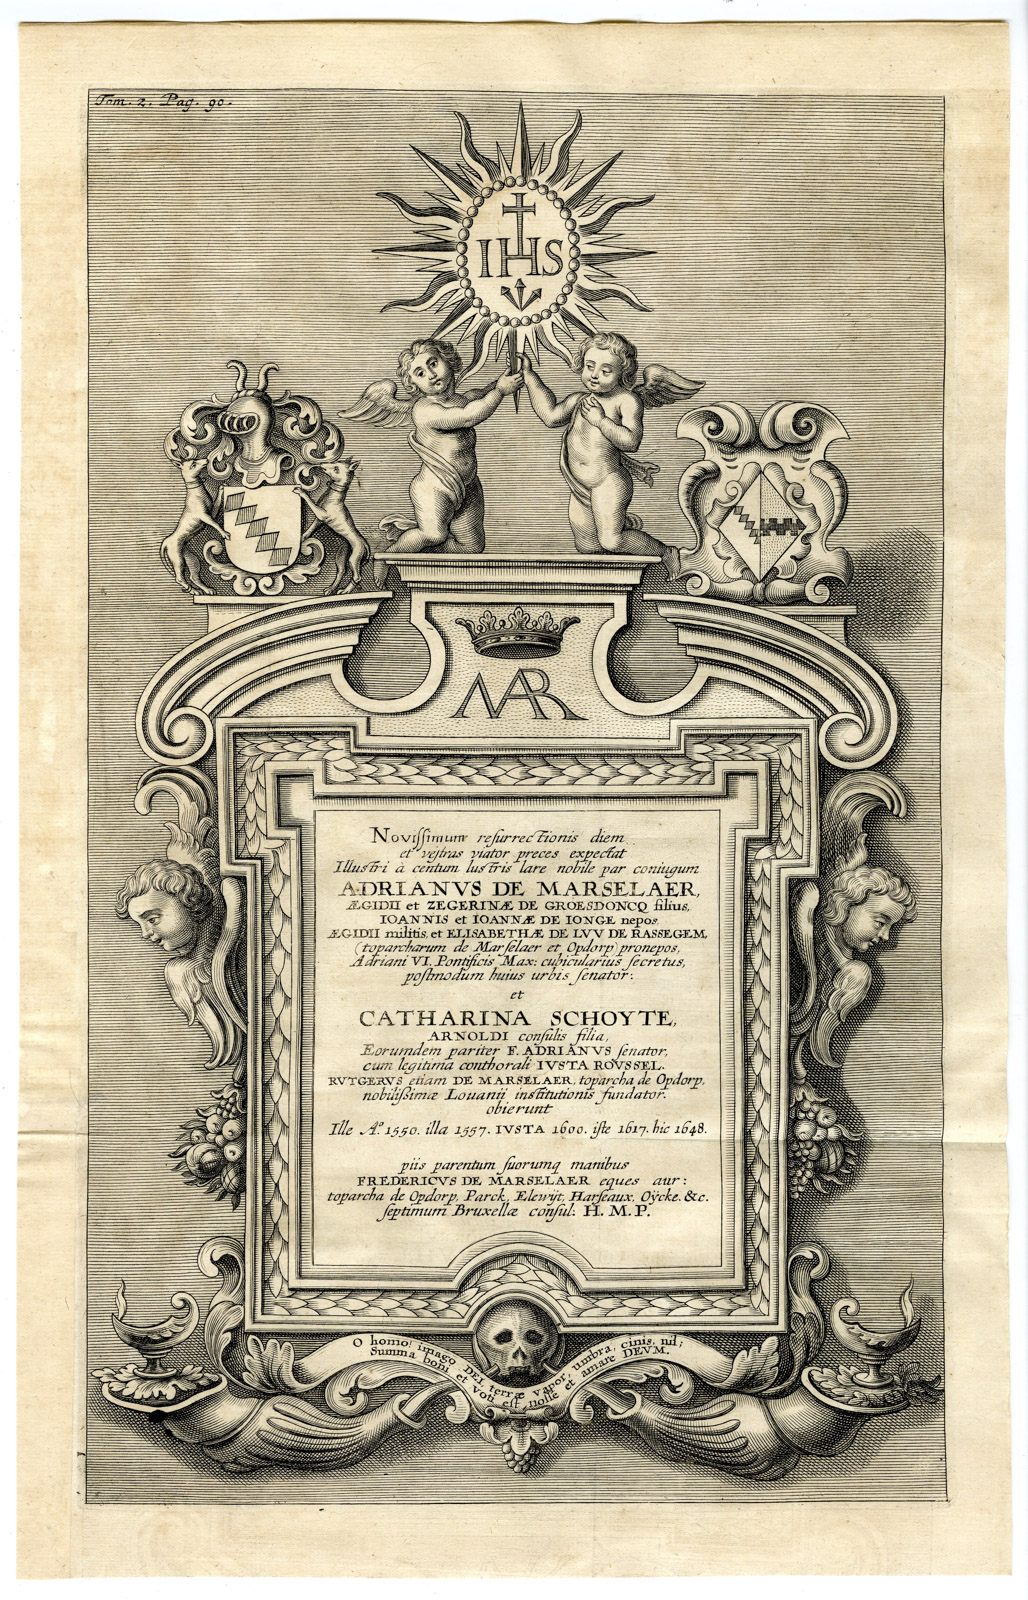 Tom. 2. Pag. 90.
IHS
MAR
Novissimum resurrectionis diem
et vestras viator preces expectat
Illustri à centum lustris lare nobile par coniugum
ADRIANVS DE MARSELAER,
ÆGIDII et ZEGERINÆ DE GROESDONCQ filius,
IOANNIS et IOANNÆ DE IONGE nepos
ÆGIDII militis, et ELISABETHÆ DE LVV DE RASSEGEM,
(toparcharum de Marselaer et Opdorp) pronepos,
Adriani VI. Pontificis Max: cubicularius secretus,
postmodum huius urbis senator:
et
CATHARINA SCHOYTE,
ARNOLDI consulis filia,
Eorumdem pariter F. ADRIANVS senator,
cum legitima conthorali IVSTA ROVSSEL.
RVTGERVS etiam DE MARSELAER, toparcha de Opdorp,
nobilissimæ Louanii institutionis fundator.
obierunt
Ille Aº. 1550. illa 1557. IVSTA 1600. iste 1617. hic 1648.
piis parentum suorumq manibus
FREDERICVS DE MARSELAER eques aur:
toparcha de Opdorp, Parck, Elewijt, Harseaux, Oÿcke. &c.
septimum Bruxellæ consul: H. M. P.
O homo! imago DEI, terræ vapor, umbra, cinis, nil;
Summa boni et voti est nosse et amare DEVM.